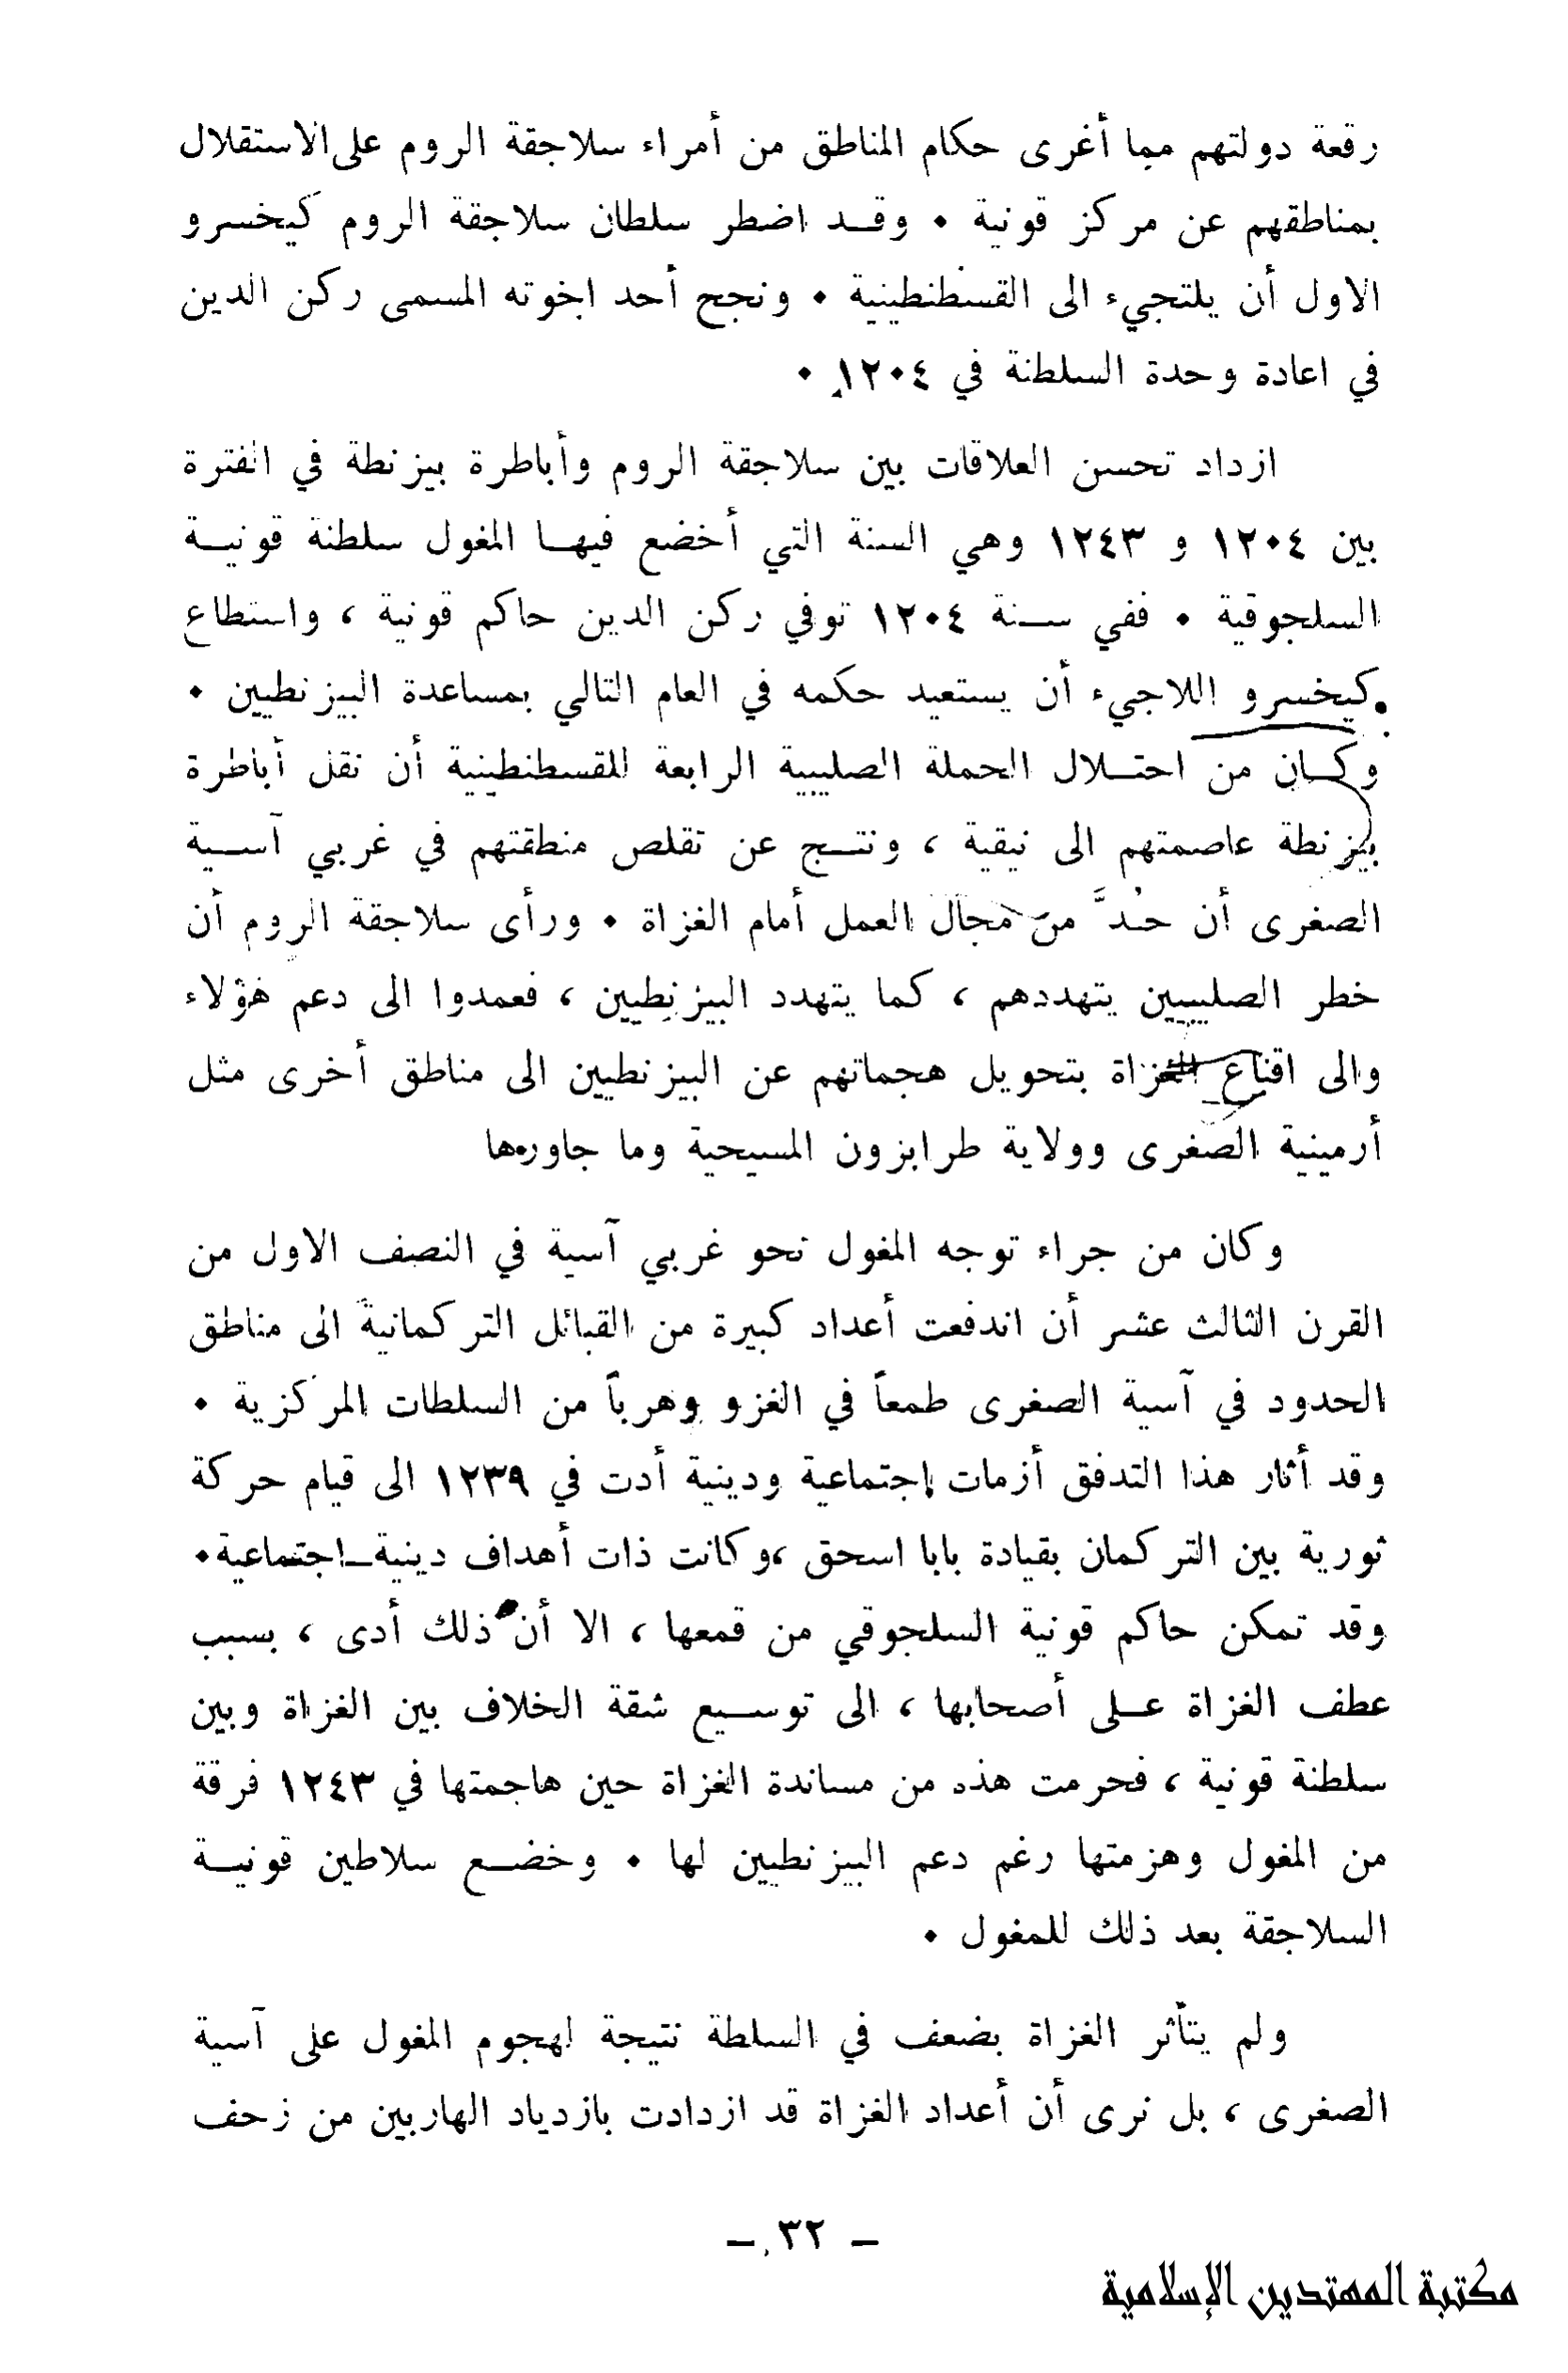 رقعة دولتهم مما أغرى حكام المناطق من أمراء سلاجقة الروم على الاستقلال
بمناطقهم عن مركز قونية ٠ وقــد اضطر سلطان سلاجقة الروم كيخسرو
الاول أن يلتجيء الى القسطنطينية ٠ ونجح أحد اخوته المسمى ركن الدين
في اعادة وحدة السلطنة في ١٢٠٤ ٠
ازداد تحسن العلاقات بين سلاجقة الروم وأباطرة بيزنطة في الفترة
بين ١٢٠٤ و ١٢٤٣ وهي السنة التي أخضع فيهــا المغول سلطنة قونيــة
السلجوقية ٠ ففي ســنة ١٢٠٤ توفي ركن الدين حاكم قونية ، واستطاع
كيخسرو اللاجيء أن يستعيد حكمه في العام التالي بمساعدة البيزنطيين ٠
وكــان من احتــلال الحملة الصليبية الرابعة للقسطنطينية أن نقل أباطرة
بيزنطة عاصمتهم الى نيقية ، ونتــج عن تقلص منطقتهم في غربي آســية
الصغرى أن حُدَّ من مجال العمل أمام الغزاة ٠ ورأى سلاجقة الروم أن
خطر الصليبيين يتهددهم ، كما يتهدد البيزنطيين ، فعمدوا الى دعم هؤلاء
والى اقناع الغزاة بتحويل هجماتهم عن البيزنطيين الى مناطق أخرى مثل
أرمينية الصغرى وولاية طرابزون المسيحية وما جاورها
وكان من جراء توجه المغول نحو غربي آسية في النصف الاول من
القرن الثالث عشر أن اندفعت أعداد كبيرة من القبائل التركمانية الى مناطق
الحدود في آسية الصغرى طمعاً في الغزو وهرباً من السلطات المركزية ٠
وقد أثار هذا التدفق أزمات إجتماعية ودينية أدت في ١٢٣٩ الى قيام حركة
ثورية بين التركمان بقيادة بابا اسحق ،وكانت ذات أهداف دينية_اجتماعية٠
وقد تمكن حاكم قونية السلجوقي من قمعها ، الا أن ذلك أدى ، بسبب
عطف الغزاة عــلى أصحابها ، الى توســيع شقة الخلاف بين الغزاة وبين
سلطنة قونية ، فحرمت هذه من مساندة الغزاة حين هاجمتها في ١٢٤٣ فرقة
من المغول وهزمتها رغم دعم البيزنطيين لها ٠ وخضــع سلاطين قونيــة
السلاجقة بعد ذلك للمغول ٠
ولم يتأثر الغزاة بضعف في السلطة نتيجة لهجوم المغول على آسية
الصغرى ، بل نرى أن أعداد الغزاة قد ازدادت بازدياد الهاربين من زحف
– ٣٢ –
مكتبة المهتدين الإسلامية